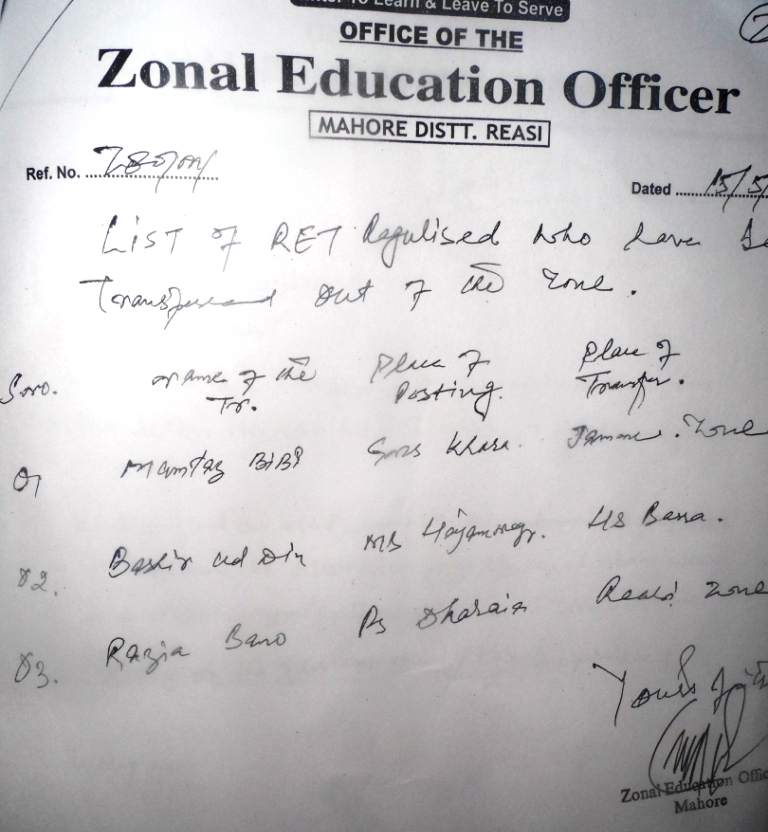 To Learn & Leave To Serve
OFFICE OF THE
Zonal Education Officer
MAHORE DISTT. REASI
Ref. No.
Dated 15/5
LIST of RET Regulised who have
out of the zone.
S.no. Name of the Tr. Place of Posting. Place of Transfer.
01 Mumtaz BiBi Khara. Zone
02. Bashir ud Din MS HS Bana.
03. Razia Bano PS Reasi zone
Yours
Zonal Education Offic
Mahore